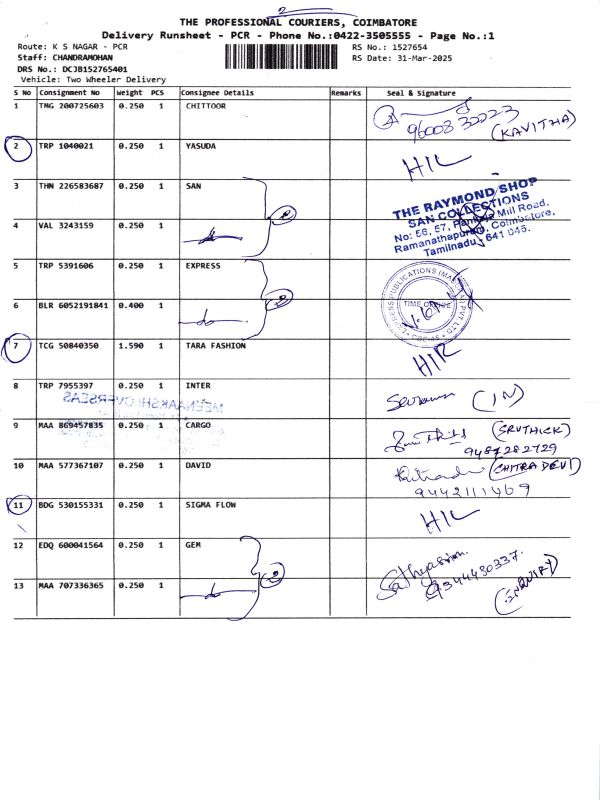 2
THE PROFESSIONAL COURIERS, COIMBATORE
Delivery Runsheet - PCR - Phone No.:0422-3505555 - Page No.:1
Route: K S NAGAR - PCR RS No.: 1527654
Staff: CHANDRAMOHAN RS Date: 31-Mar-2025
DRS No.: DCJB152765401
Vehicle: Two Wheeler Delivery
S No Consignment No Weight PCS Consignee Details Remarks Seal & Signature
1 TMG 200725603 0.250 1 CHITTOOR
9600830223
(KAVITHA)
2 TRP 1040021 0.250 1 YASUDA
HIL
3 THN 226583687 0.250 1 SAN
2
THE RAYMOND SHOP
SAN COLLECTIONS
No: 56, 57, Mill Road,
Ramanathapuram, Coimbatore,
Tamilnadu - 641 045.
4 VAL 3243159 0.250 1 do
5 TRP 5391606 0.250 1 EXPRESS
2
EXPRESS PUBLICATIONS PVT LTD
TIME OFFICE
CBE-45
6 BLR 6052191841 0.400 1 do
7 TCG 50840350 1.590 1 TARA FASHION
HIL
8 TRP 7955397 0.250 1 INTER
(IN)
MEENAAKSHI OVERSEAS
9 MAA 869457835 0.250 1 CARGO
(SRUTHICK)
9487282729
10 MAA 577367107 0.250 1 DAVID
(CHITRA DEVI)
9442111469
11 BDG 530155331 0.250 1 SIGMA FLOW
HIL
12 EDQ 600041564 0.250 1 GEM
2
9344480337.
13 MAA 707336365 0.250 1 do
(ENQUIRY)